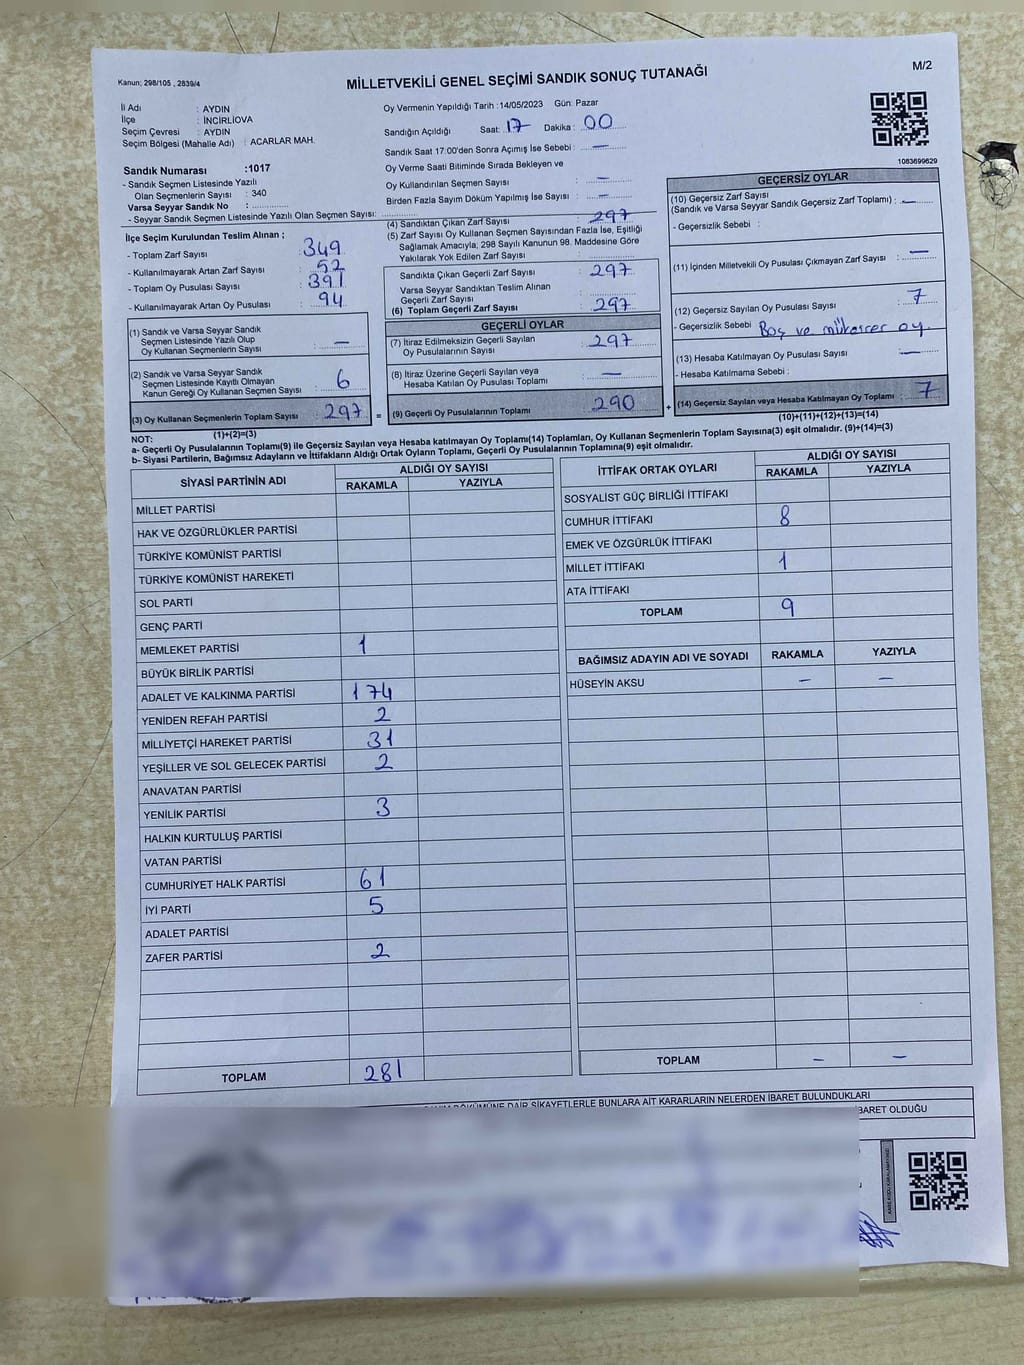 Kanun; 298/105 , 2839/4
MİLLETVEKİLİ GENEL SEÇİMİ SANDIK SONUÇ TUTANAĞI
M/2
İl Adı : AYDIN
İlçe : İNCİRLİOVA
Seçim Çevresi : AYDIN
Seçim Bölgesi (Mahalle Adı) : ACARLAR MAH.
Sandık Numarası :1017
- Sandık Seçmen Listesinde Yazılı
Olan Seçmenlerin Sayısı : 340
Varsa Seyyar Sandık No :
- Seyyar Sandık Seçmen Listesinde Yazılı Olan Seçmen Sayısı:
Oy Vermenin Yapıldığı Tarih :14/05/2023 Gün: Pazar
Sandığın Açıldığı Saat: 17 Dakika : 00
Sandık Saat 17:00'den Sonra Açımış İse Sebebi : —
Oy Verme Saati Bitiminde Sırada Bekleyen ve
Oy Kullandırılan Seçmen Sayısı : —
Birden Fazla Sayım Döküm Yapılmış İse Sayısı : —
1083699629
İlçe Seçim Kurulundan Teslim Alınan ;
- Toplam Zarf Sayısı : 349
- Kullanılmayarak Artan Zarf Sayısı : 52
- Toplam Oy Pusulası Sayısı : 391
- Kullanılmayarak Artan Oy Pusulası : 94
(1) Sandık ve Varsa Seyyar Sandık
Seçmen Listesinde Yazılı Olup
Oy Kullanan Seçmenlerin Sayısı : —
(2) Sandık ve Varsa Seyyar Sandık
Seçmen Listesinde Kayıtlı Olmayan
Kanun Gereği Oy Kullanan Seçmen Sayısı : 6
(3) Oy Kullanan Seçmenlerin Toplam Sayısı : 297 =
(1)+(2)=(3)
(4) Sandıktan Çıkan Zarf Sayısı : 297
(5) Zarf Sayısı Oy Kullanan Seçmen Sayısından Fazla İse, Eşitliği
Sağlamak Amacıyla; 298 Sayılı Kanunun 98. Maddesine Göre
Yakılarak Yok Edilen Zarf Sayısı :
Sandıkta Çıkan Geçerli Zarf Sayısı : 297
Varsa Seyyar Sandıktan Teslim Alınan
Geçerli Zarf Sayısı :
(6) Toplam Geçerli Zarf Sayısı : 297
GEÇERLİ OYLAR
(7) İtiraz Edilmeksizin Geçerli Sayılan
Oy Pusulalarının Sayısı : 297
(8) İtiraz Üzerine Geçerli Sayılan veya
Hesaba Katılan Oy Pusulası Toplamı : —
(9) Geçerli Oy Pusulalarının Toplamı : 290 +
GEÇERSİZ OYLAR
(10) Geçersiz Zarf Sayısı
(Sandık ve Varsa Seyyar Sandık Geçersiz Zarf Toplamı) : —
- Geçersizlik Sebebi :
(11) İçinden Milletvekili Oy Pusulası Çıkmayan Zarf Sayısı : —
(12) Geçersiz Sayılan Oy Pusulası Sayısı : 7
- Geçersizlik Sebebi : Boş ve mükerrer oy.
(13) Hesaba Katılmayan Oy Pusulası Sayısı : —
- Hesaba Katılmama Sebebi :
(14) Geçersiz Sayılan veya Hesaba Katılmayan Oy Toplamı : 7
(10)+(11)+(12)+(13)=(14)
NOT:
a- Geçerli Oy Pusulalarının Toplamı(9) ile Geçersiz Sayılan veya Hesaba katılmayan Oy Toplamı(14) Toplamları, Oy Kullanan Seçmenlerin Toplam Sayısına(3) eşit olmalıdır. (9)+(14)=(3)
b- Siyasi Partilerin, Bağımsız Adayların ve İttifakların Aldığı Ortak Oyların Toplamı, Geçerli Oy Pusulalarının Toplamına(9) eşit olmalıdır.
SİYASİ PARTİNİN ADI ALDIĞI OY SAYISI
RAKAMLA YAZIYLA
MİLLET PARTİSİ
HAK VE ÖZGÜRLÜKLER PARTİSİ
TÜRKİYE KOMÜNİST PARTİSİ
TÜRKİYE KOMÜNİST HAREKETİ
SOL PARTİ
GENÇ PARTİ
MEMLEKET PARTİSİ 1
BÜYÜK BİRLİK PARTİSİ
ADALET VE KALKINMA PARTİSİ 174
YENİDEN REFAH PARTİSİ 2
MİLLİYETÇİ HAREKET PARTİSİ 31
YEŞİLLER VE SOL GELECEK PARTİSİ 2
ANAVATAN PARTİSİ
YENİLİK PARTİSİ 3
HALKIN KURTULUŞ PARTİSİ
VATAN PARTİSİ
CUMHURİYET HALK PARTİSİ 61
İYİ PARTİ 5
ADALET PARTİSİ
ZAFER PARTİSİ 2
TOPLAM 281
İTTİFAK ORTAK OYLARI ALDIĞI OY SAYISI
RAKAMLA YAZIYLA
SOSYALİST GÜÇ BİRLİĞİ İTTİFAKI
CUMHUR İTTİFAKI 8
EMEK VE ÖZGÜRLÜK İTTİFAKI
MİLLET İTTİFAKI 1
ATA İTTİFAKI
TOPLAM 9
BAĞIMSIZ ADAYIN ADI VE SOYADI RAKAMLA YAZIYLA
HÜSEYİN AKSU – –
TOPLAM – –
DÖKÜMÜNE DAİR ŞİKAYETLERLE BUNLARA AİT KARARLARIN NELERDEN İBARET BULUNDUKLARI
İBARET OLDUĞU